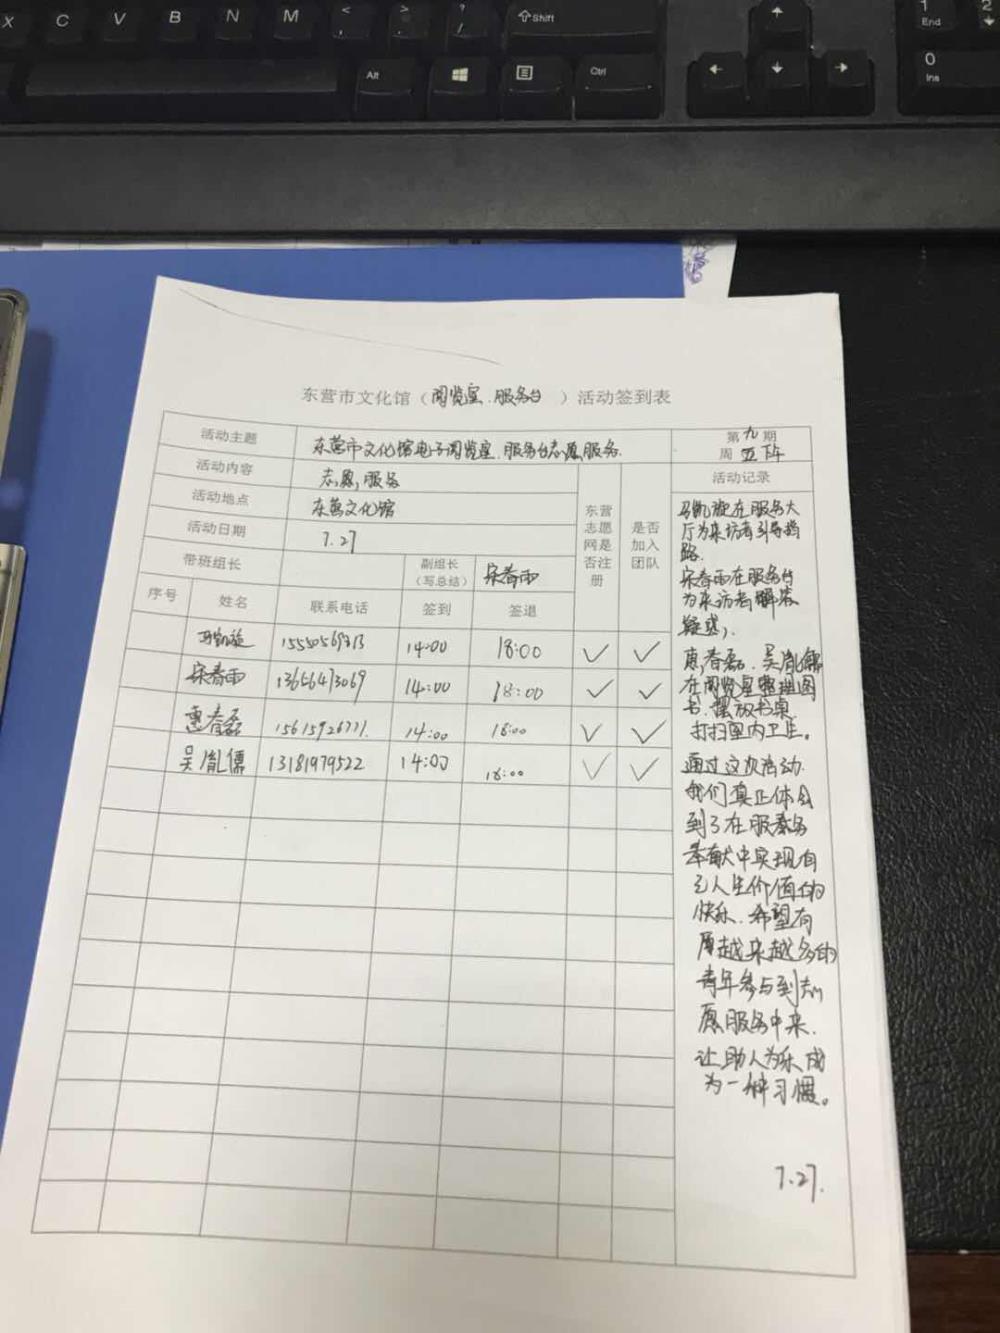 X C V B N M < > ? / Shift
Alt Ctrl
1 End 2
0 Ins
东营市文化馆（阅览室、服务台）活动签到表
活动主题 东营市文化馆电子阅览室、服务台志愿服务. 第九期
周五下午
活动内容 志愿服务 活动记录
活动地点 东营文化馆
活动日期 7.27
东营志愿网是否注册
是否加入团队
带班组长 副组长（写总结） 宋春雨
序号 姓名 联系电话 签到 签退
马凯旋 14:00 18:00 ✓ ✓
宋春雨 13656473069 14:00 18:00 ✓ ✓
惠春磊 14:00 18:00 ✓ ✓
吴胤儒 13181979522 14:00 18:00 ✓ ✓
马凯旋在服务大
厅为来访者引导指
路.
宋春雨在服务台
为来访者解答
疑惑,
惠春磊、吴胤儒
在阅览室整理图
书、摆放书桌
打扫室内卫生。
通过这次活动.
我们真正体会
到了在服务
奉献中实现自
己人生价值的
快乐.希望有
越来越多的
青年参与到志
愿服务中来.
让助人为乐成
为一种习惯。
7.27.